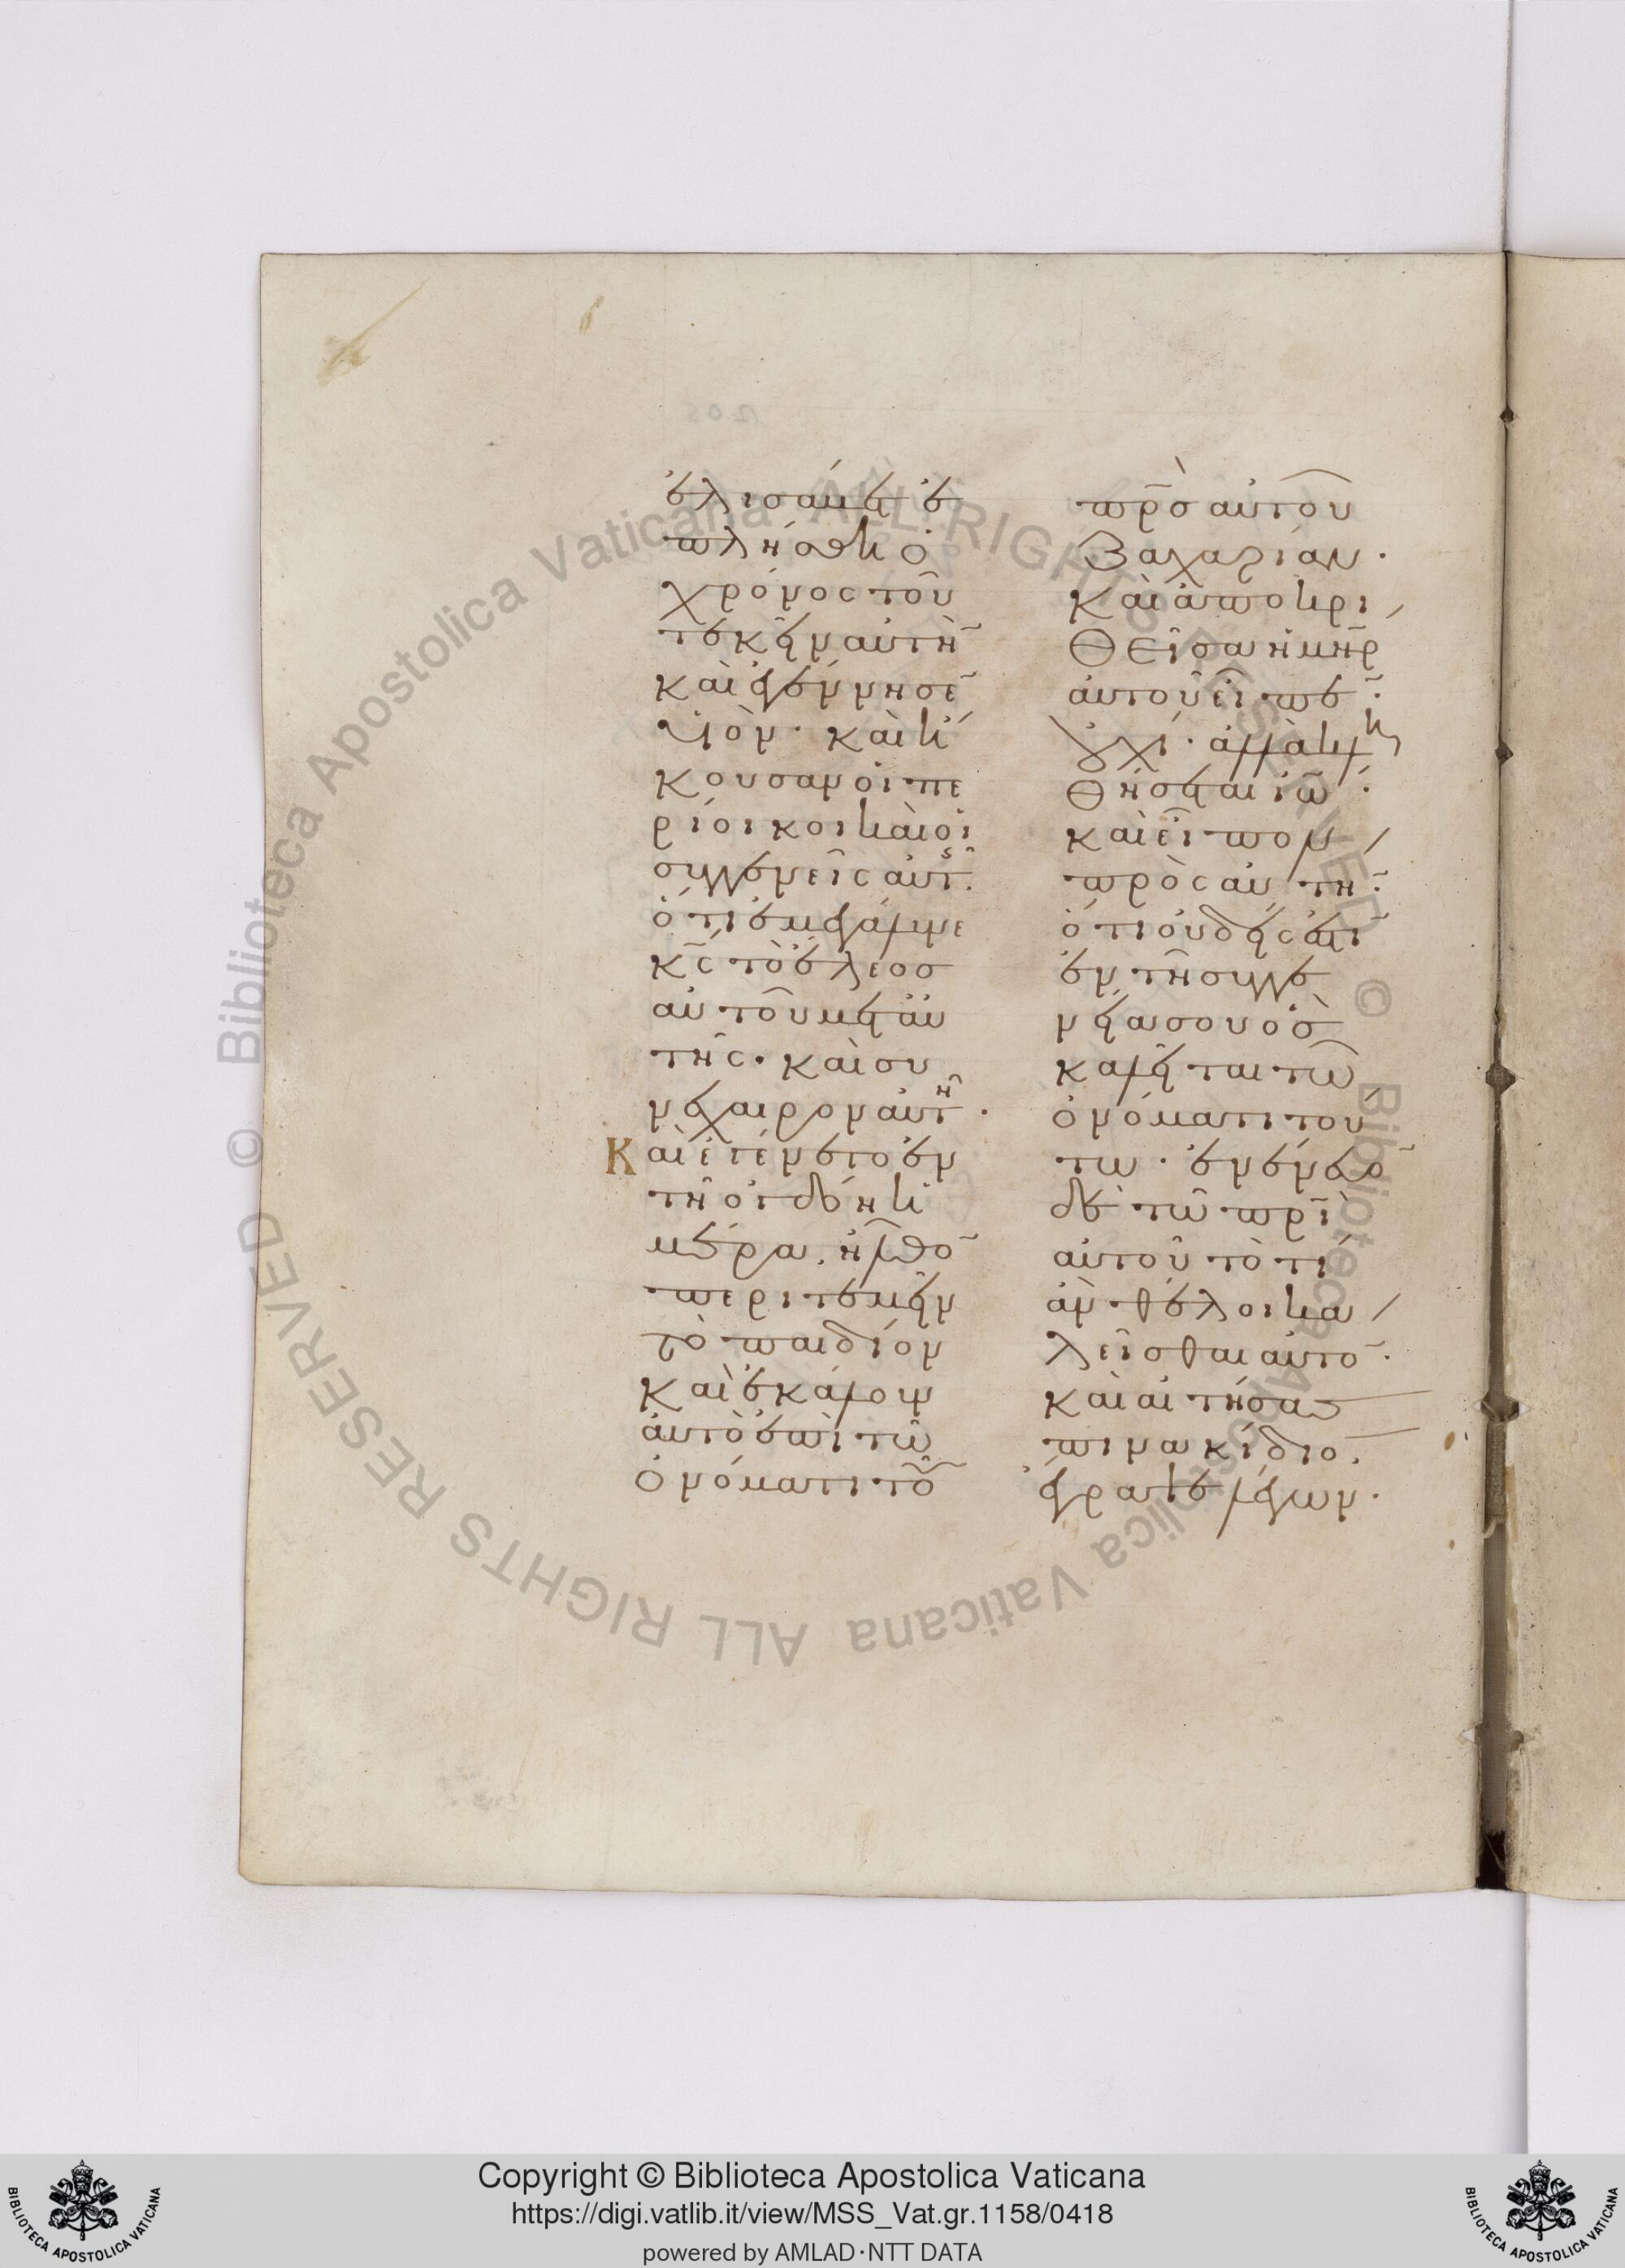 ἐλισάβετ ἐ
πλήσθη ὁ
χρόνος τοῦ
τεκεῖν αὐτὴ̄
καὶ ἐγέννησε̄
υἱὸν· καὶ ἤ
κουσαν οἱ πε
ρίοικοι καὶ οἱ
συγγενεῖς αὐτ̑ς·
ὅτι ἐμεγάλυνε
κ̅ς̅ τὸ ἔλεος
αὐτοῦ μετ αὐ
τῆς· καὶ συ
νέχαιρον αὐτῆ·
Καὶ ἐγένετο ἐν
τῆ ὀγδόη ἡ
μέρα, ἦλθο̄
περιτεμεῖν
τὸ παιδίον
καὶ ἐκάλουν
αὐτὸ ἐπὶ τῶ
ὀνόματι τοῦ
π̅ρ̅ς̅ αὐτοῦ
Ζαχαρίαν·
Καὶ ἀποκρι
θεῖσα ἡ μ̅η̅ρ̅
αὐτοῦ εἶπε̄·
οὐχὶ· ἀλλὰ κλη
θήσεται ἰω̄·
καὶ εἶπον
πρὸς αὐτὴ̄·
ὅτι οὐδείς ἐστῑ
ἐν τῆ συγγε
νεία σου ὃς
καλεῖται τῶ
ὀνόματι τού
τω· ἐνένευο̄
δὲ τῶ π̅ρ̅ι̅
αὐτοῦ τὸ τί
ἂν θέλοι κα
λεῖσθαι αὐτό·
καὶ αἰτήσας
πινακίδιο̄,
ἔγραψε λέγων·
Copyright © Biblioteca Apostolica Vaticana
https://digi.vatlib.it/view/MSS_Vat.gr.1158/0418
powered by AMLAD·NTT DATA
BIBLIOTECA APOSTOLICA VATICANA
BIBLIOTECA APOSTOLICA VATICANA
© Biblioteca Apostolica Vaticana ALL RIGHTS RESERVED © Biblioteca Apostolica Vaticana ALL RIGHTS RESERVED